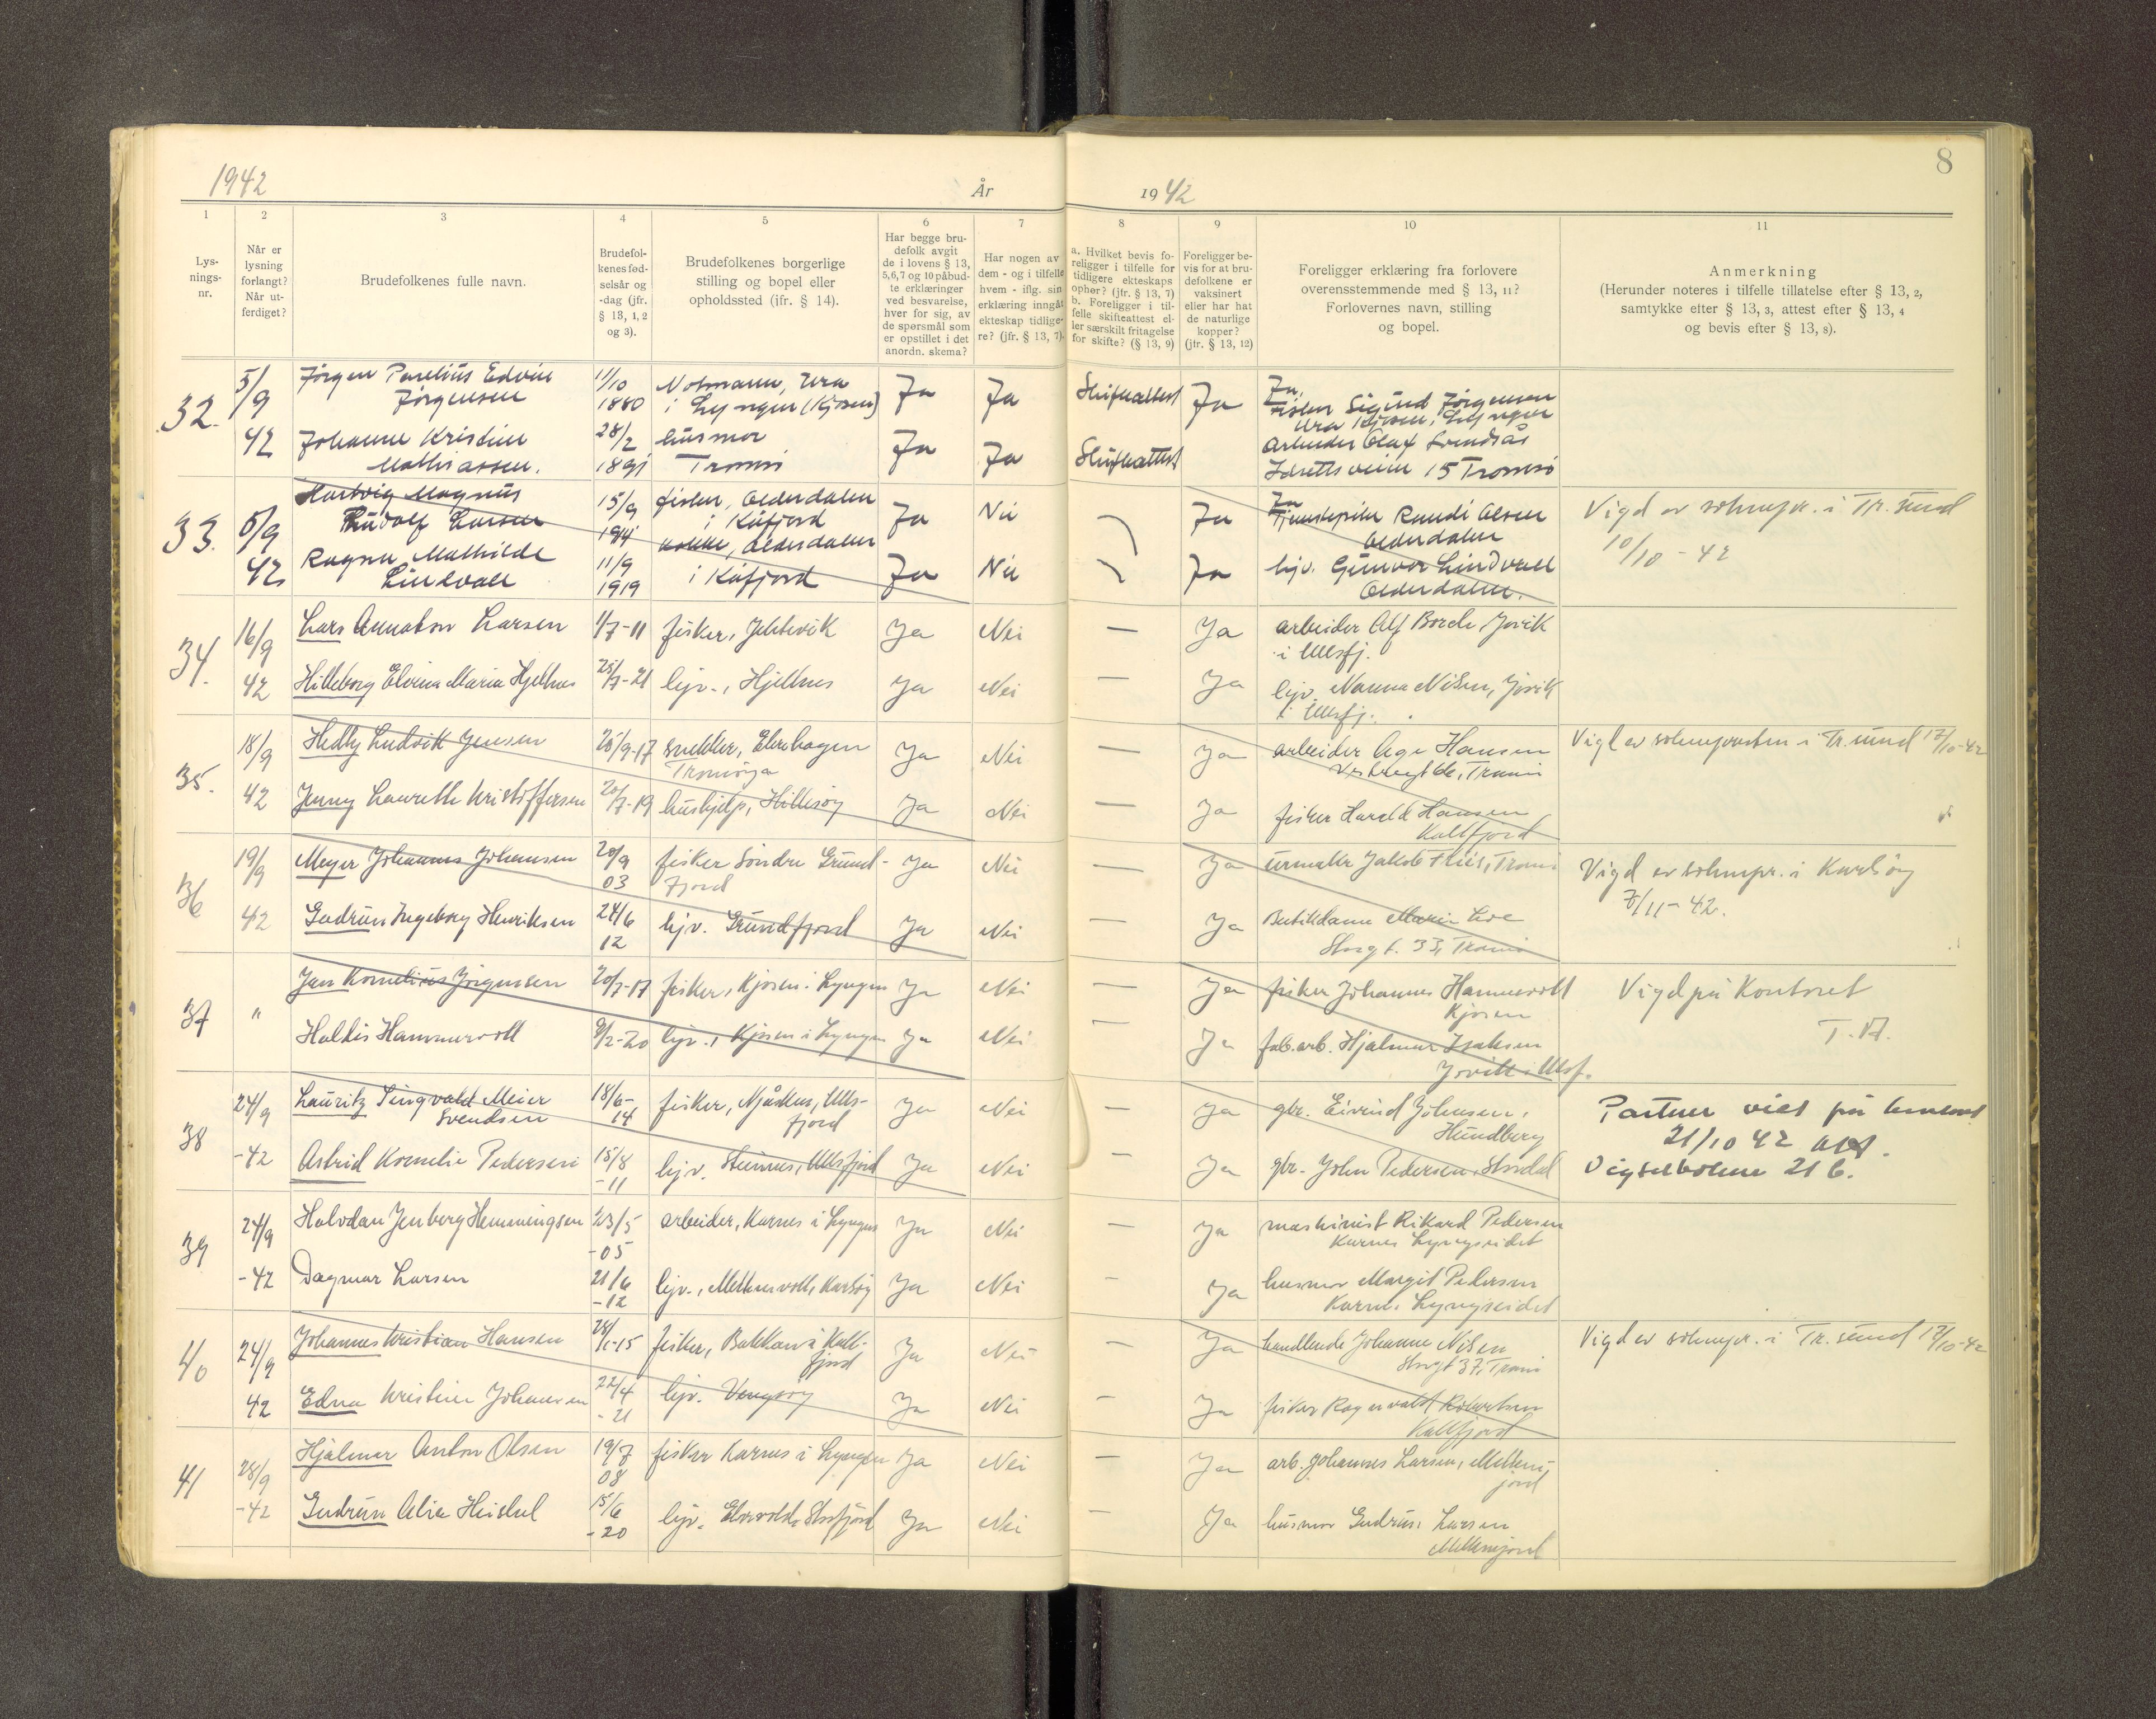 1942
År
1942
8
1
2
3
4
5
6
7
8
9
10
11
Lys-
nings-
nr.
Når er
lysning
forlangt?
Når ut-
ferdiget?
Brudefolkenes fulle navn.
Brudefol-
kenes fød-
selsår og
-dag (jfr.
§ 13, 1, 2
og 3).
Brudefolkenes borgerlige
stilling og bopel eller
opholdssted (ifr. § 14).
Har begge bru-
defolk avgit
de i lovens § 13,
5,6,7 og 10 påbud-
te erklæringer
ved besvarelse,
hver for sig, av
de spørsmål som
er opstillet i det
anordn. skema?
Har nogen av
dem - og i tilfelle
hvem - iflg. sin
erklæring inngåt
ekteskap tidlige-
re? (jfr. § 13, 7).
a. Hvilket bevis fo-
religger i tilfelle for
tidligere ekteskaps
ophør? (jfr. § 13, 7)
b. Foreligger i til-
felle skifteattest el-
ler særskilt fritagelse
for skifte? (§ 13, 9)
Foreligger be-
vis for at bru-
defolkene er
vaksinert
eller har hat
de naturlige
kopper?
(jfr. § 13, 12)
Foreligger erklæring fra forlovere
overensstemmende med § 13, 11?
Forlovernes navn, stilling
og bopel.
Anmerkning
(Herunder noteres i tilfelle tillatelse efter § 13, 2,
samtykke efter § 13, 3, attest efter § 13, 4
og bevis efter § 13, 8).
32. 5/9 42
Jørgen Parelius Edvin
Jørgensen
11/10 1880
i Lyngen (Kjosen)
Ja Ja Skifteattest Ja
Ja.
Fisker Sigurd Jørgensen
Ura Kjosen, Lyngen
Johanne Kristine
Mathiassen.
28/2 1891
husmor
Tromsø
Ja Ja Skifteattest
Arbeider Olaf
15 Tromsø
33. 5/9 42
Hartvig Magnus
Rudolf Larsen
15/9 1914
fisker, Olderdalen
i Kåfjord
Ja Nei Ja
Ja
Randi Olsen
Olderdalen
Vigd av sokнepr. i Tr.sund
10/10 - 42
Ragna Mathilde
Lindvall
11/9 1919
Olderdalen
i Kåfjord
Ja Nei Ja
hjv. Gunvor Lindvall
Olderdalen.
34. 16/9 42
Lars Annaton Larsen
1/7-11
fisker,
Ja Nei — Ja
arbeider Alf Jøvik
i Ullsfj.
Hilleborg Elvina Maria Hjellnes
25/7-21
hjv., Hjellnes
Ja Nei — Ja
hjv. Nanna Nilsen, Jøvik
i Ullsfj.
35. 18/9 42
Hedly Ludvik Jensen
25/9-17
snekker, Elvehagen
Tromsøya
Ja Nei — Ja
arbeider Åge Hansen
Tromsø
Vigd av soknepresten i Tr.sund 17/10-42
Jenny Laurette Kristoffersen
20/7-19
hushjelp, Hillesøy
Ja Nei — Ja
fisker Harald Hansen
Kaldfjord
36 19/9 42
Meyer Johannes Johansen
20/9 03
fisker Søndre Grunn-
fjord
Ja Nei — Ja
urmaker Jakob Tromsø
Vigd av soknepr. i Karlsøy
7/11 - 42.
Gudrun Ingeborg Henriksen
24/6 12
hjv. Grunnfjord
Ja Nei — Ja
Butikkdame Marie
Storgt. 33, Tromsø
37 "
Jan Kornelius Jørgensen
20/7-17
fisker, Kjosen i Lyngen
Ja Nei — Ja
fisker Johannes Hammervoll
Kjosen
Vigd på Kontoret
Haldis Hammervoll
9/2-20
hjv., Kjosen i Lyngen
Ja Nei — Ja
fab.arb. Hjalmar Isaksen
Jøvik i Ullsf.
38 24/9 -42
Lauritz Singvald Meier
Svendsen
18/6- 14
fisker, Njåskens, Ulls-
fjord
Ja Nei — Ja
gbr. Eivind Johnsen,
Hundberg
Partene viet på
21/10 42
21 b.
Astrid Kornelie Pedersen
15/8 -11
hjv. Steinnes, Ullsfjord
Ja Nei — Ja
gbr. John Pedersen,
39 24/9 -42
Halvdan Jenberg Hemmingsen
23/5 -05
arbeider, Karnes i Lyngen
Ja Nei — Ja
maskinist Rikard Pedersen
Karnes Lyngseidet
Dagmar Larsen
21/6 -12
hjv., Karlsøy
Ja Nei — Ja
husmor Margit Pedersen
Karnes Lyngseidet
40 24/9 42
Johannes Kristian Hansen
fisker, Bakkan i Kald-
fjord
Ja Nei — Ja
handlende Johanne Nilsen
Storgt 37, Tromsø
Vigd av soknepr. i Tr.sund 17/10-42
Edna Kristine Johansen
22/4 -21
hjv. Vengsøy
Ja Nei — Ja
fisker Ragnvald
Kaldfjord
41 28/9 -42
Hjalmar Anton Olsen
19/7 08
fisker Karnes i Lyngen
Ja Nei — Ja
arb. Johannes Larsen,
Gudrun Alia Heiskel
15/6 -20
hjv. Elvevold, Storfjord
Ja Nei — Ja
husmor Gudrun Larsen